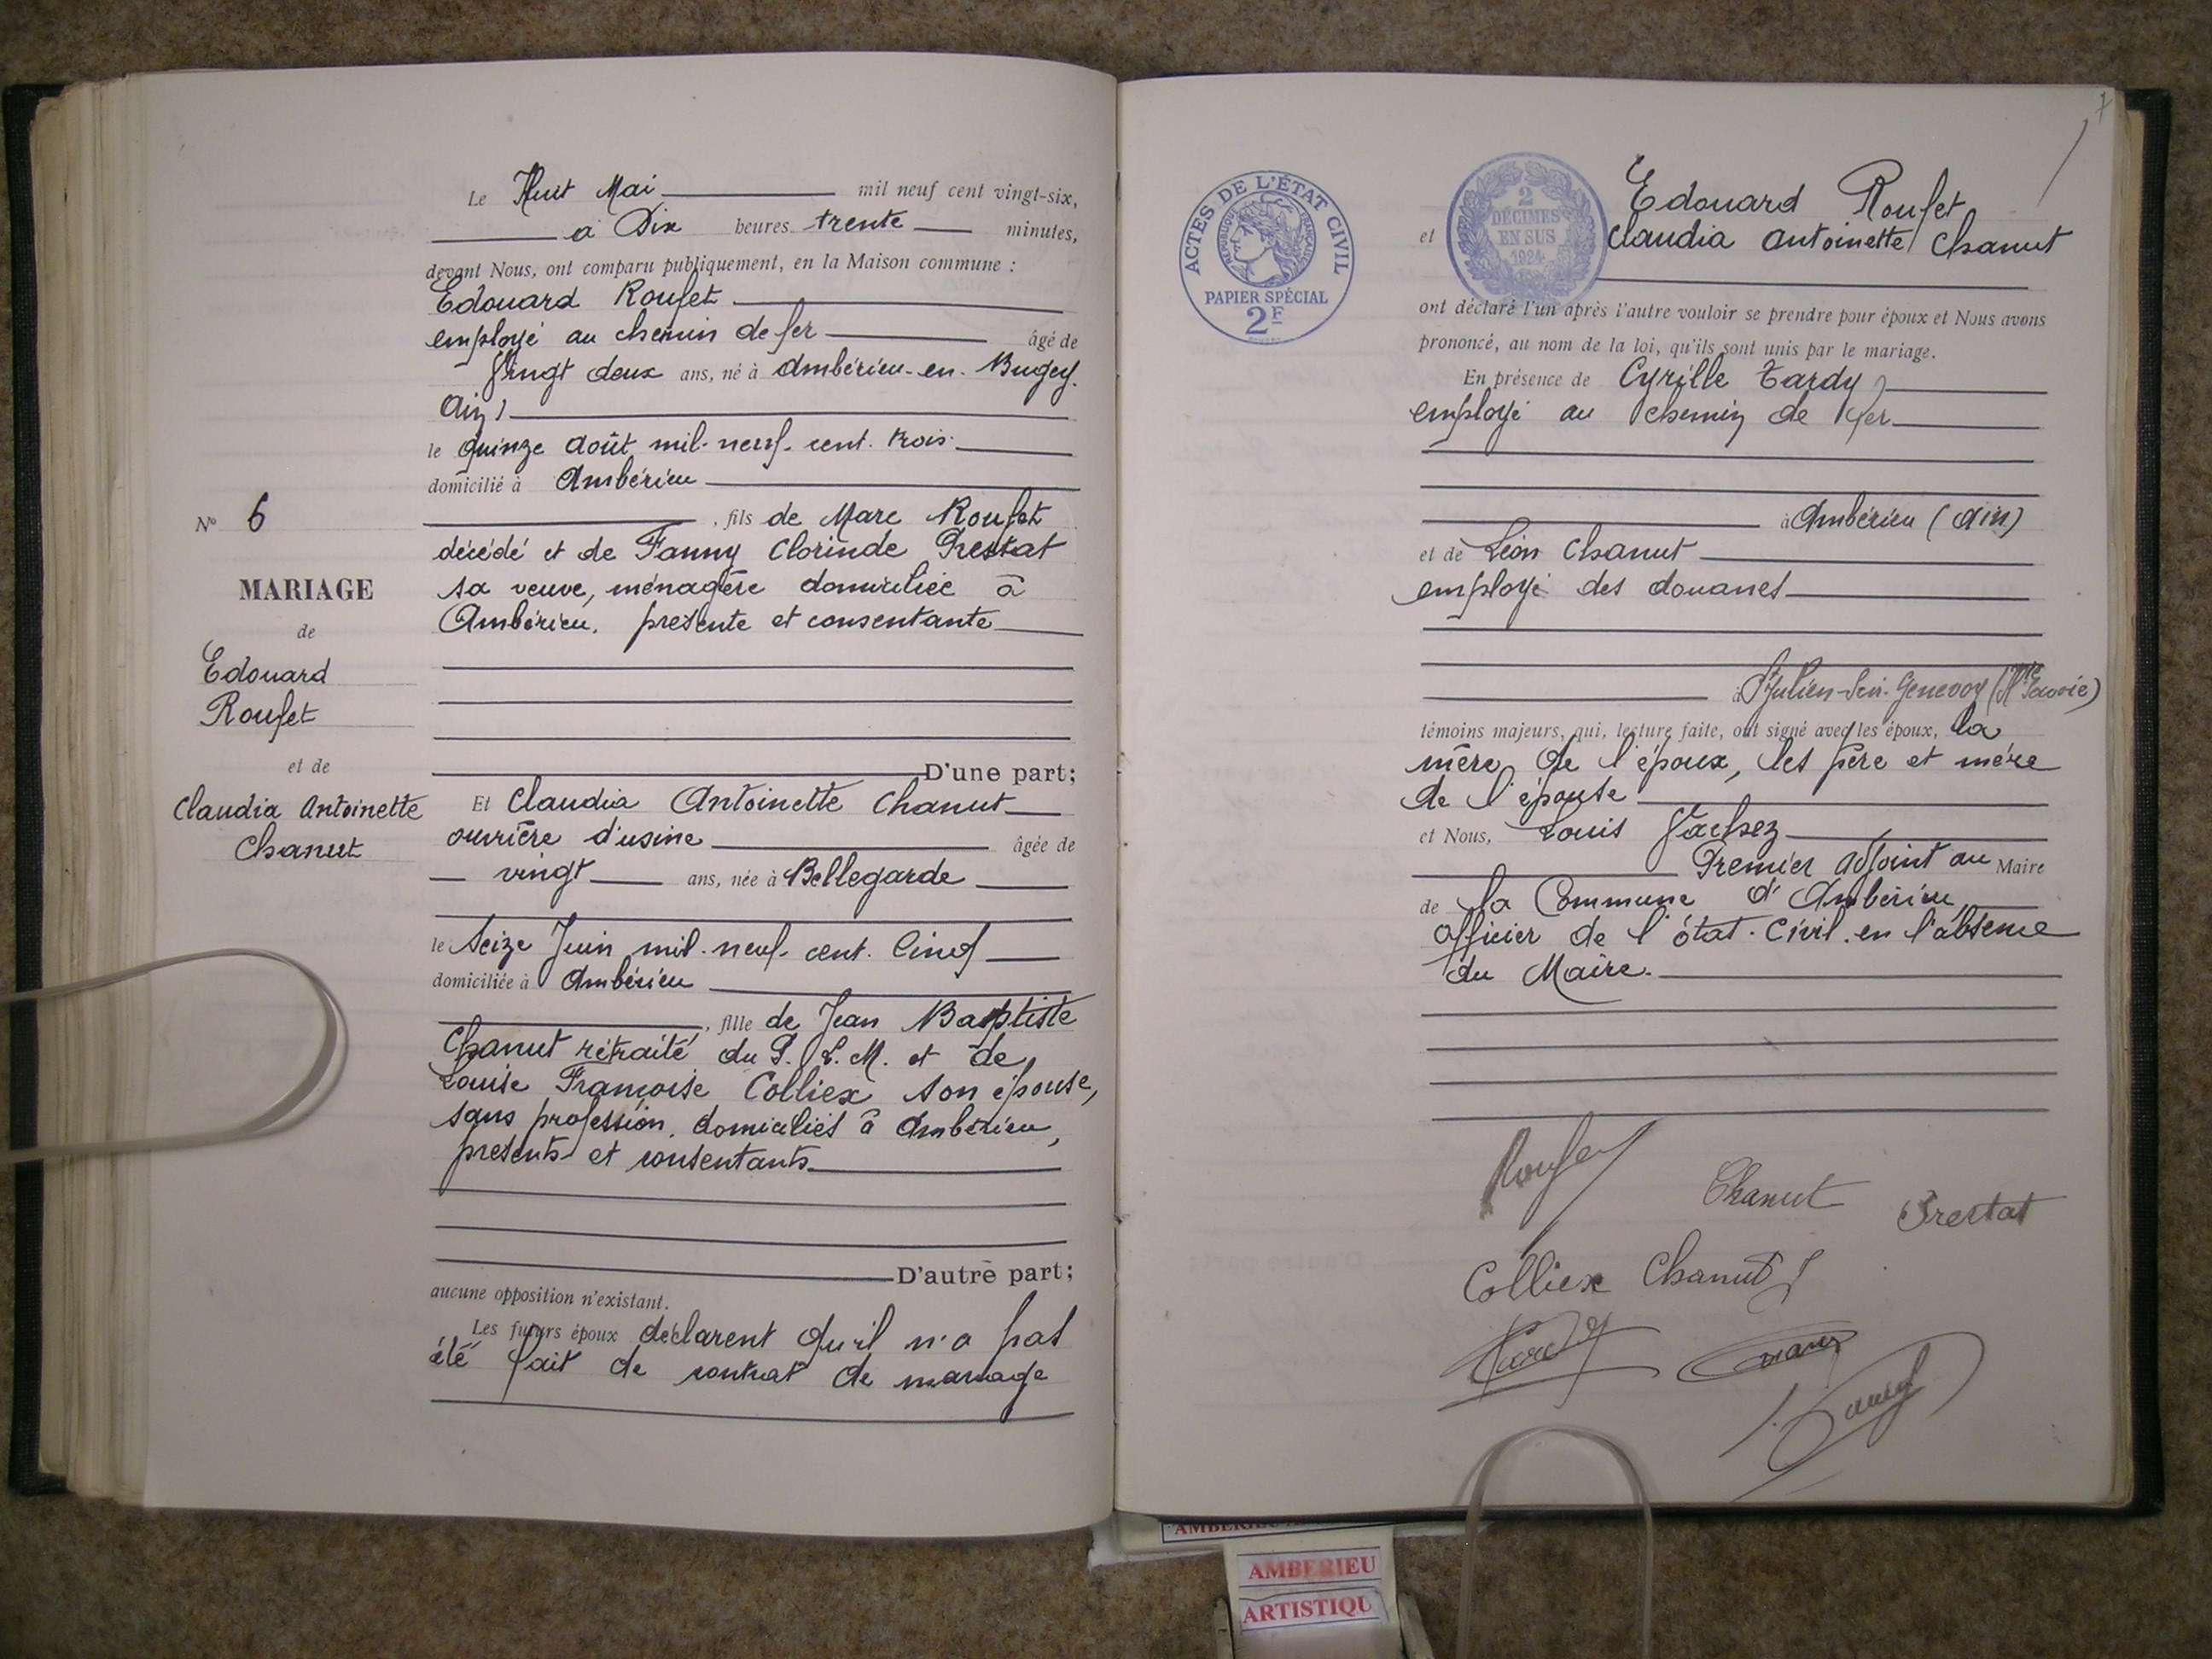 Le Huit Mai mil neuf cent vingt-six,
à Dix heures trente minutes,
devant Nous, ont comparu publiquement, en la Maison commune :
Edouard Roufet
employé au chemin de fer âgé de
Vingt deux ans, né à Ambérieu-en-Bugey.
Ain)
le quinze août mil-neuf-cent-trois
domicilié à Ambérieu
, fils de Marc Roufet
décédé et de Fanny Clorinde Prestat
sa veuve, ménagère domiciliée à
Ambérieu, présente et consentante
D'une part;
Et Claudia Antoinette Chanut
ouvrière d'usine âgée de
vingt ans, née à Bellegarde
le Seize Juin mil-neuf-cent-Cinq
domiciliée à Ambérieu
, fille de Jean Baptiste
Chanut retraité du P. L. M. et de
Louise Françoise Colliex son épouse,
sans profession, domiciliés à Ambérieu,
présents et consentants
D'autre part;
aucune opposition n'existant.
Les futurs époux déclarent qu'il n'a pas
été fait de contrat de mariage
N° 6
MARIAGE
de
Edouard
Roufet
et de
Claudia Antoinette
Chanut
7
ACTES DE L'ÉTAT CIVIL
RÉPUBLIQUE FRANÇAISE
PAPIER SPÉCIAL
2F
2
DÉCIMES
EN SUS
1924
Edouard Roufet
et Claudia Antoinette Chanut
ont déclaré l'un après l'autre vouloir se prendre pour époux et Nous avons
prononcé, au nom de la loi, qu'ils sont unis par le mariage.
En présence de Cyrille Tardy
employé au chemin de fer
à Ambérieu (Ain)
et de Léon Chanut
employé des douanes
à St Julien-en-Genevoy (Hte Savoie)
témoins majeurs, qui, lecture faite, ont signé avec les époux, la
mère de l'époux, les père et mère
de l'épouse
et Nous, Louis Vachez
Premier adjoint au Maire
de la Commune d'Ambérieu
officier de l'état-Civil en l'absence
du Maire.
Roufet
Chanut
Prestat
Colliex Chanut
Tardy
AMBERIEU
ARTISTIQU